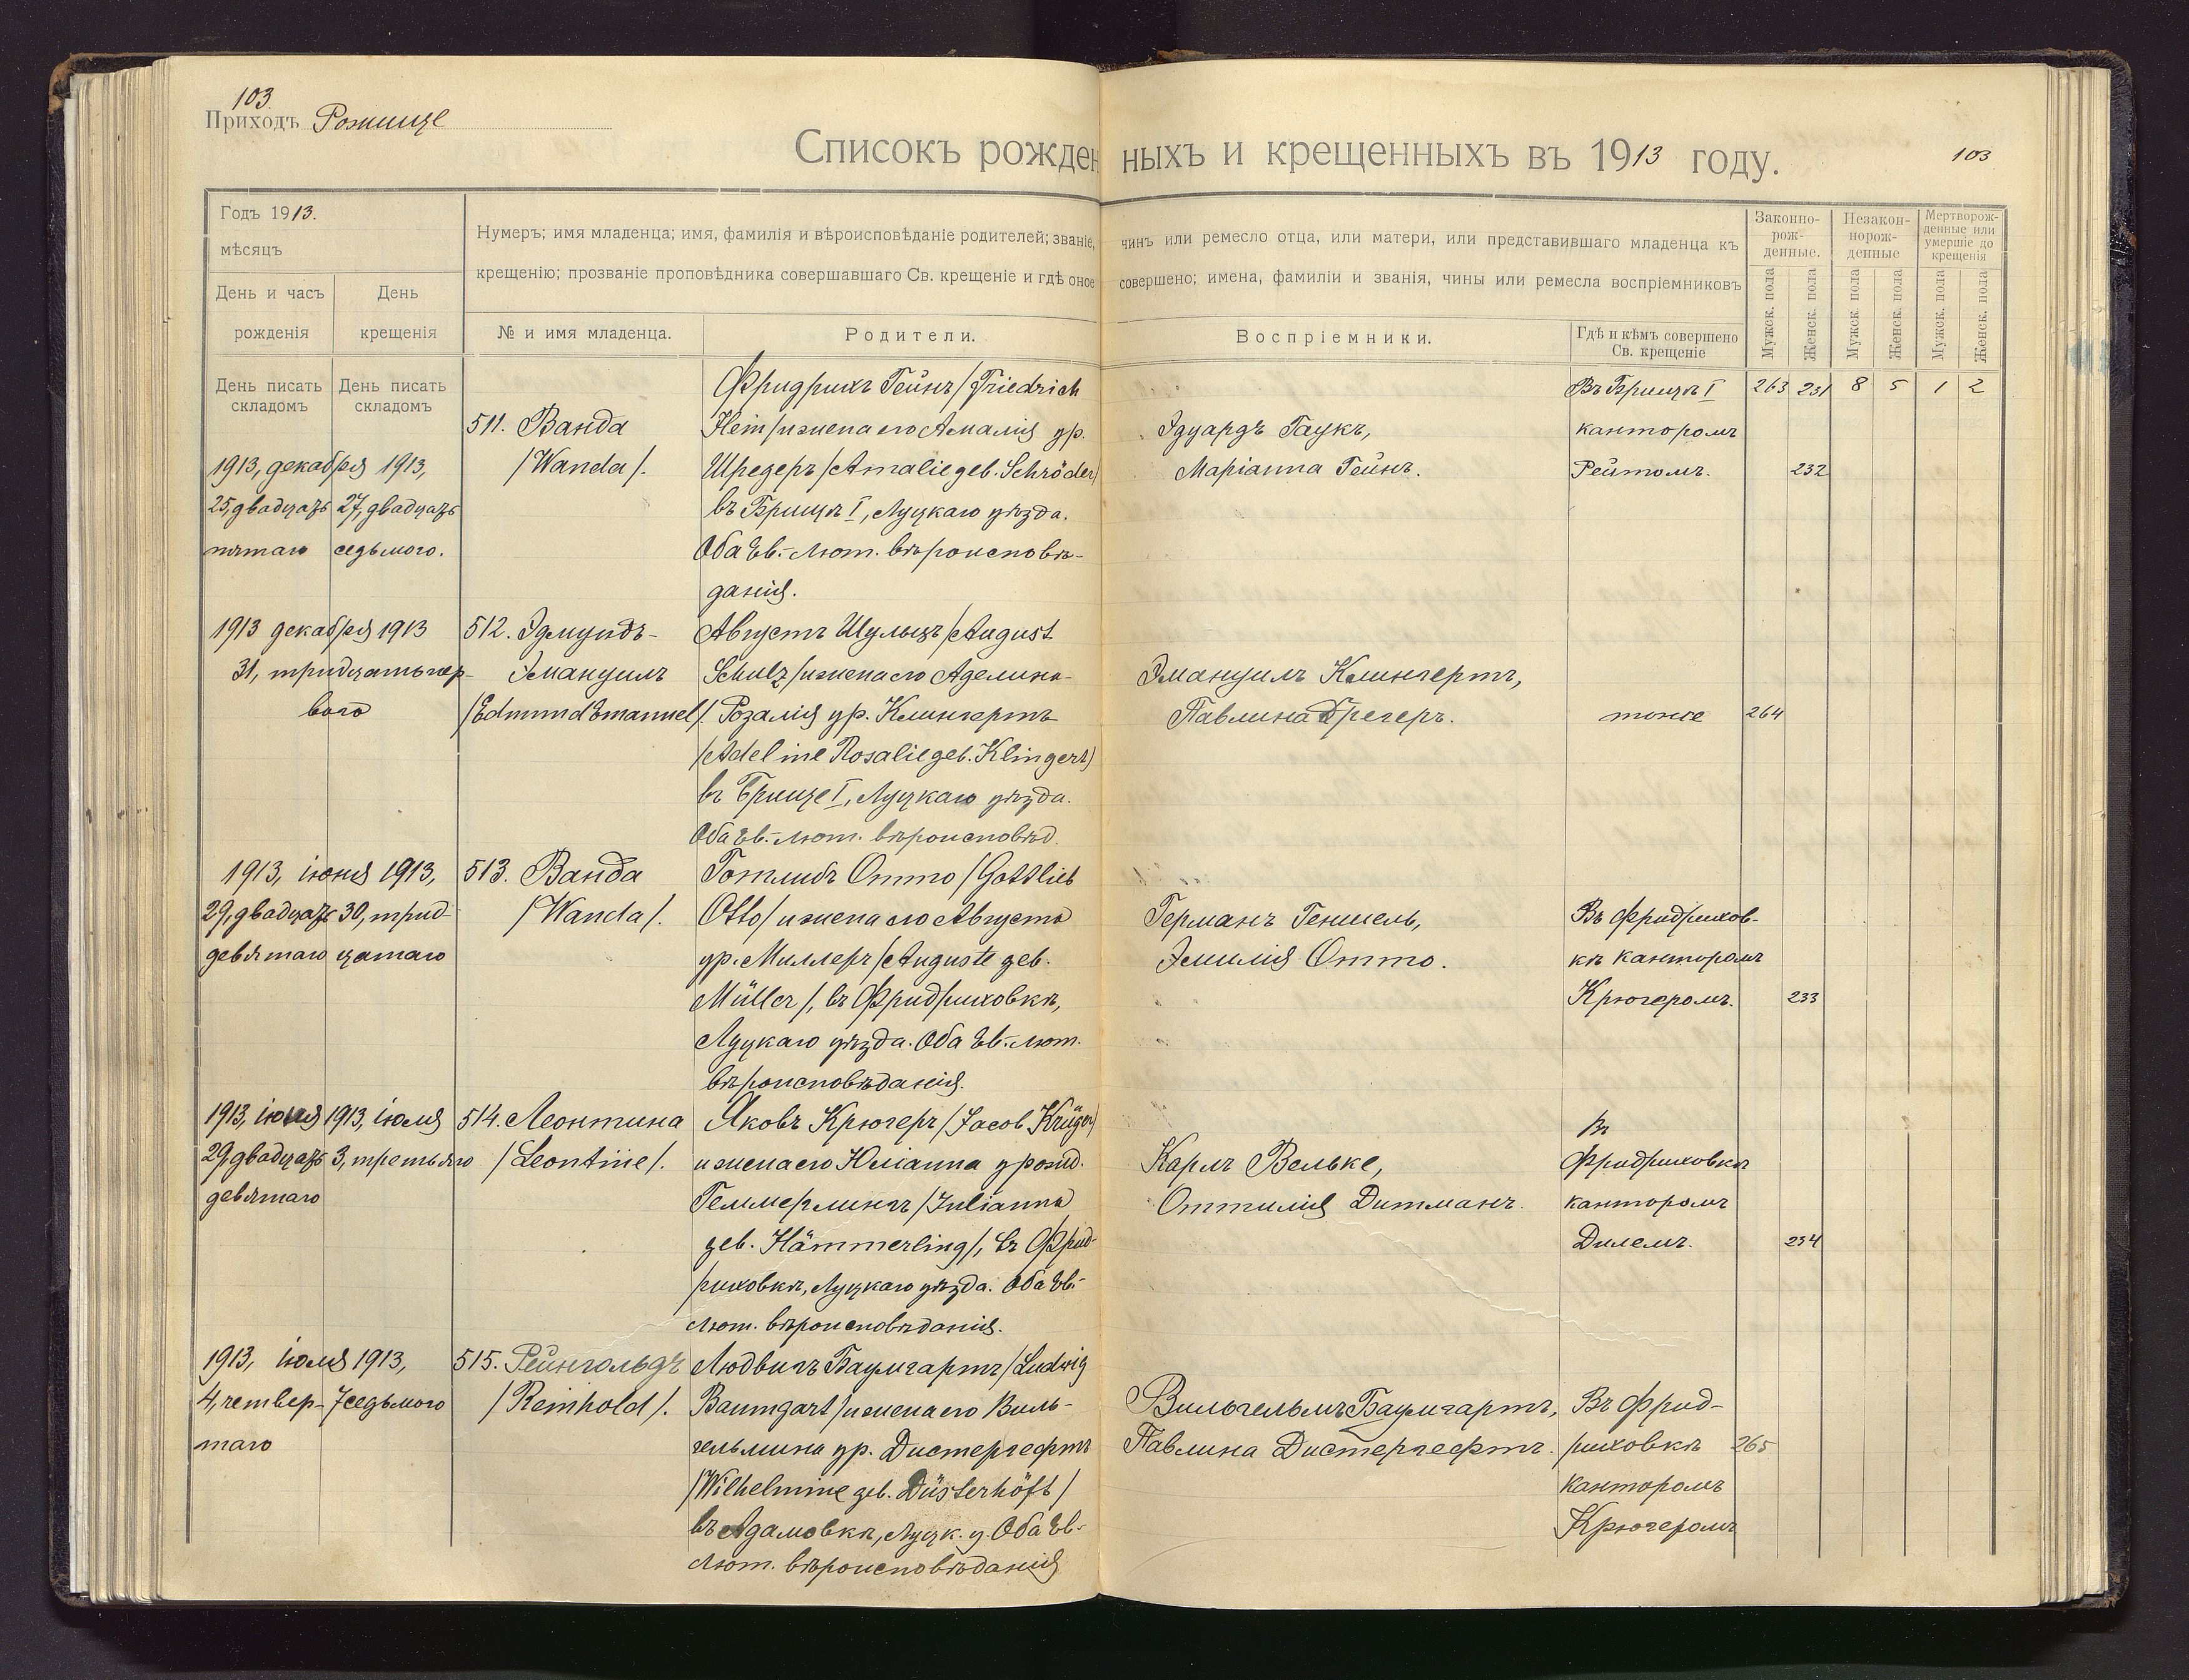 103.
Приходъ Рожище
Списокъ рожденныхъ и крещенныхъ въ 1913 году.
103
Годъ 1913.
мѣсяцъ
День и часъ рожденія
День крещенія
Нумеръ; имя младенца; имя, фамилія и вѣроисповѣданіе родителей; званіе, чинъ или ремесло отца, или матери, или представившаго младенца къ
крещенію; прозваніе проповѣдника совершавшаго Св. крещеніе и гдѣ оное совершено; имена, фамиліи и званія, чины или ремесла воспріемниковъ
№ и имя младенца.
Родители.
Воспріемники.
Гдѣ и кѣмъ совершено
Св. крещеніе
Законно-
рож-
денные.
Незакон-
норож-
денные
Мертворож-
денные или
умершіе до
крещенія
Мужск. пола
Женск. пола
Мужск. пола
Женск. пола
Мужск. пола
Женск. пола
День писать
складомъ
День писать
складомъ
263 231 8 5 1 2
1913, декабря 1913,
25, двадцать 27, двадцать
пятаго седьмого.
511. Ванда
/Wanda/.
Фридрихъ Гейнъ /Friedrich
Hein/ и жена его Амалія ур.
Шредеръ /Amalie geb. Schröder/
въ Брищѣ I, Луцкаго уѣзда.
Оба Ев.-Лют. вѣроисповѣ-
данія.
Эдуардъ Гаукъ,
Маріанна Гейнъ.
Въ Брищѣ I
канторомъ
Рейтомъ.
232
1913 декабря 1913
31, тридцать пер-
ваго
512. Эдмундъ-
Эмануилъ
/Edmund Emanuel/.
Августъ Шульцъ /August
Schulz/ и жена его Аделина-
Розалія ур. Клингертъ
/Adeline Rosalie geb. Klingert/
въ Брище I, Луцкаго уѣзда.
Оба Ев.-Лют. вѣроисповѣд.
Эмануилъ Клингертъ,
Павлина Грегеръ.
тоже
264
1913, іюня 1913,
29, двадцать 30, трид-
девятаго цатаго
513. Ванда
/Wanda/.
Готлибъ Отто /Gottlieb
Otto/ и жена его Августа
ур. Миллеръ /Auguste geb.
Müller/, въ Фридриховкѣ,
Луцкаго уѣзда. Оба Ев.-Лют.
вѣроисповѣданія.
Германъ Геншель,
Эмилія Отто.
Въ Фридрихов-
кѣ канторомъ
Крюгеромъ.
233
1913, іюня 1913, іюля
29, двадцать 3, третьяго
девятаго
514. Леонтина
/Leontine/.
Яковъ Крюгеръ /Jacob Krüger/
и жена его Юліанна урожд.
Геммерлингъ /Julianna
geb. Hämmerling/, въ Фрид-
риховкѣ, Луцкаго уѣзда. Оба Ев.-
Лют. вѣроисповѣданія.
Карлъ Вельке,
Оттилія Дитманъ.
Въ
Фридриховкѣ
канторомъ
Дилемъ.
234
1913, іюля 1913,
4, четвер- 7 седьмого
таго
515. Рейнгольдъ
/Reinhold/.
Людвигъ Баумгартъ /Ludwig
Baumgart/ и жена его Виль-
гельмина ур. Дистергефтъ
/Wilhelmine geb. Düsterhöft/
въ Адамовкѣ, Луцк. у. Оба Ев.-
Лют. вѣроисповѣданія
Вильгельмъ Баумгартъ,
Павлина Дистергефтъ.
Въ Фрид-
риховкѣ
канторомъ
Крюгеромъ
265